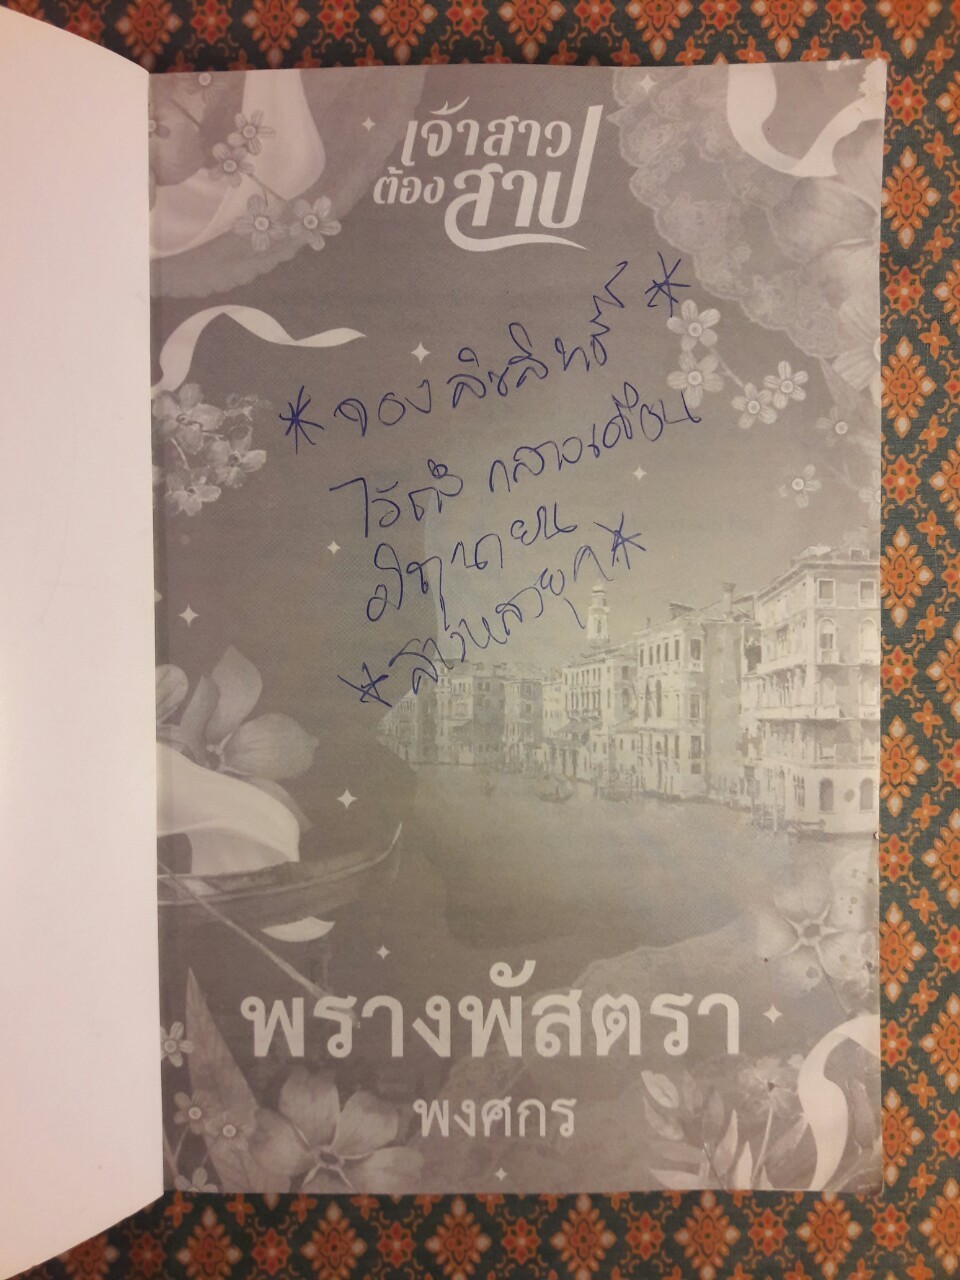 เจ้าสาว
ต้องสาป
* จองลิขสิทธิ์ *
ไว้ถึง กลางเดือน
มิถุนายน
* สาวหลวยุค *
พรางพัสตรา
พงศกร